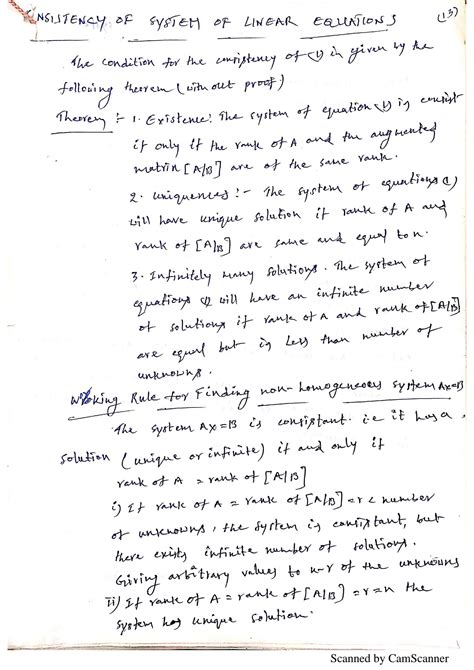 CONSISTENCY OF SYSTEM OF LINEAR EQUATIONS (13)
The condition for the consistency of (1) is given by the
following theorem (without proof)
Theorem :- 1. Existence: The system of equation (1) is consist
if only if the rank of A and the augmented
matrix [A|B] are of the same rank.
2. uniqueness :- The system of equations (1)
will have unique solution if rank of A and
rank of [A|B] are same and equal to n.
3. Infinitely many solutions. The system of
equations (1) will have an infinite number
of solutions if rank of A and rank of [A|B]
are equal but is less than number of
unknowns.
Working Rule for Finding non-homogeneous system AX=B
The system AX=B is consistant. i.e it has a
solution (unique or infinite) if and only if
rank of A = rank of [A|B]
i) If rank of A = rank of [A|B] = r < number
of unknowns, the system is consistant, but
there exists infinite number of solutions.
Giving arbitrary values to n-r of the unknowns
ii) If rank of A = rank of [A|B] = r = n the
system has unique solution.
Scanned by CamScanner